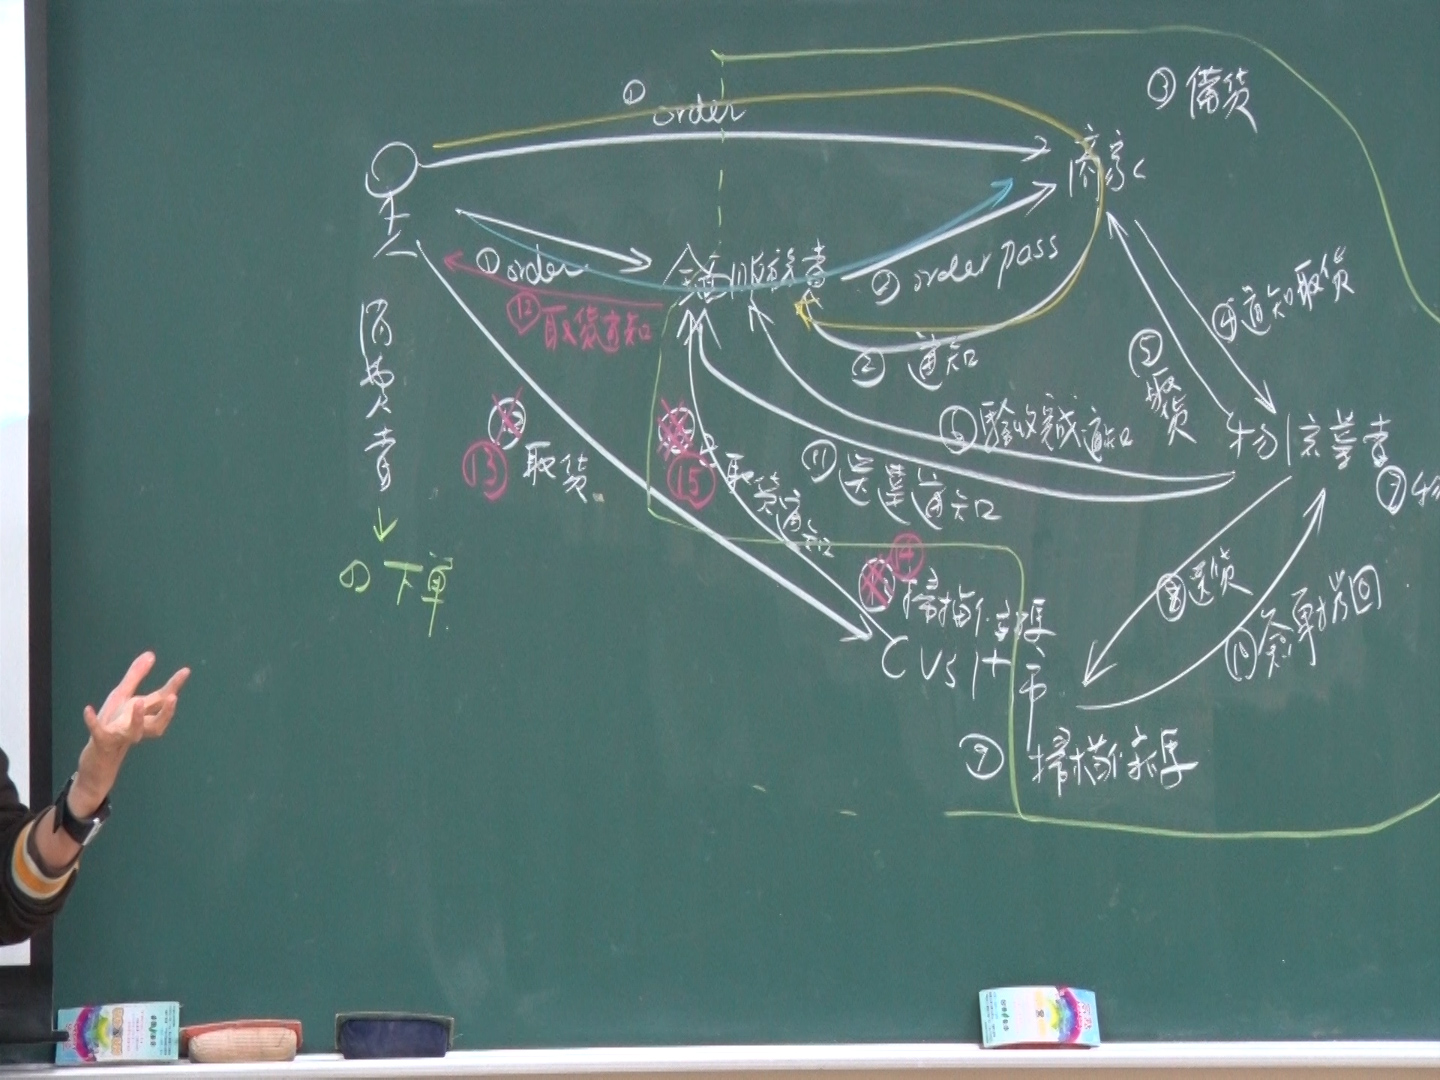 ① order
③ 備貨
商家
① order
② order pass
⑫ 取貨通知
② 通知
④ 通知取貨
⑤ 取貨
消費者
⑥ 驗收完成通知
⑬ 取貨
⑮ 取貨通知
⑪ 送達通知
物流業者
⑦ 物
① 下單
⑧ 送貨
⑭ 掃描條碼
⑩ 簽單攜回
CVS 門市
⑨ 掃描條碼